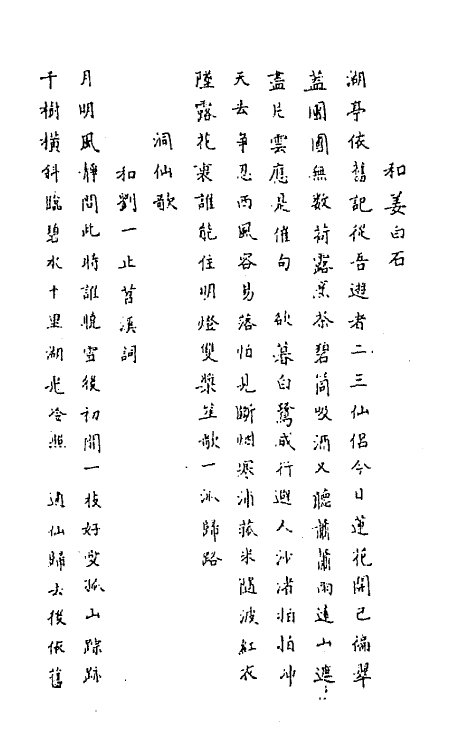 和姜白石
湖亭依舊記從吾遊者二三仙侣今日蓮花開已徧翠
蓋團團無數荷露烹茶碧筒吸酒又聽蕭蕭雨遠山遮
盡片雲應是催句　欲暮白鷺成行避人沙渚拍拍冲
天去争忍西風容易落怕見斷烟寒浦菰米隨波紅衣
墜露花裏誰能住明燈雙槳笙歌一派歸路
洞仙歌
和劉一止苕溪詞
月明風靜問此時誰曉雪後初開一枝好受孤山踪跡
千樹橫斜臨碧水十里湖光冷照　逋仙歸去後依舊